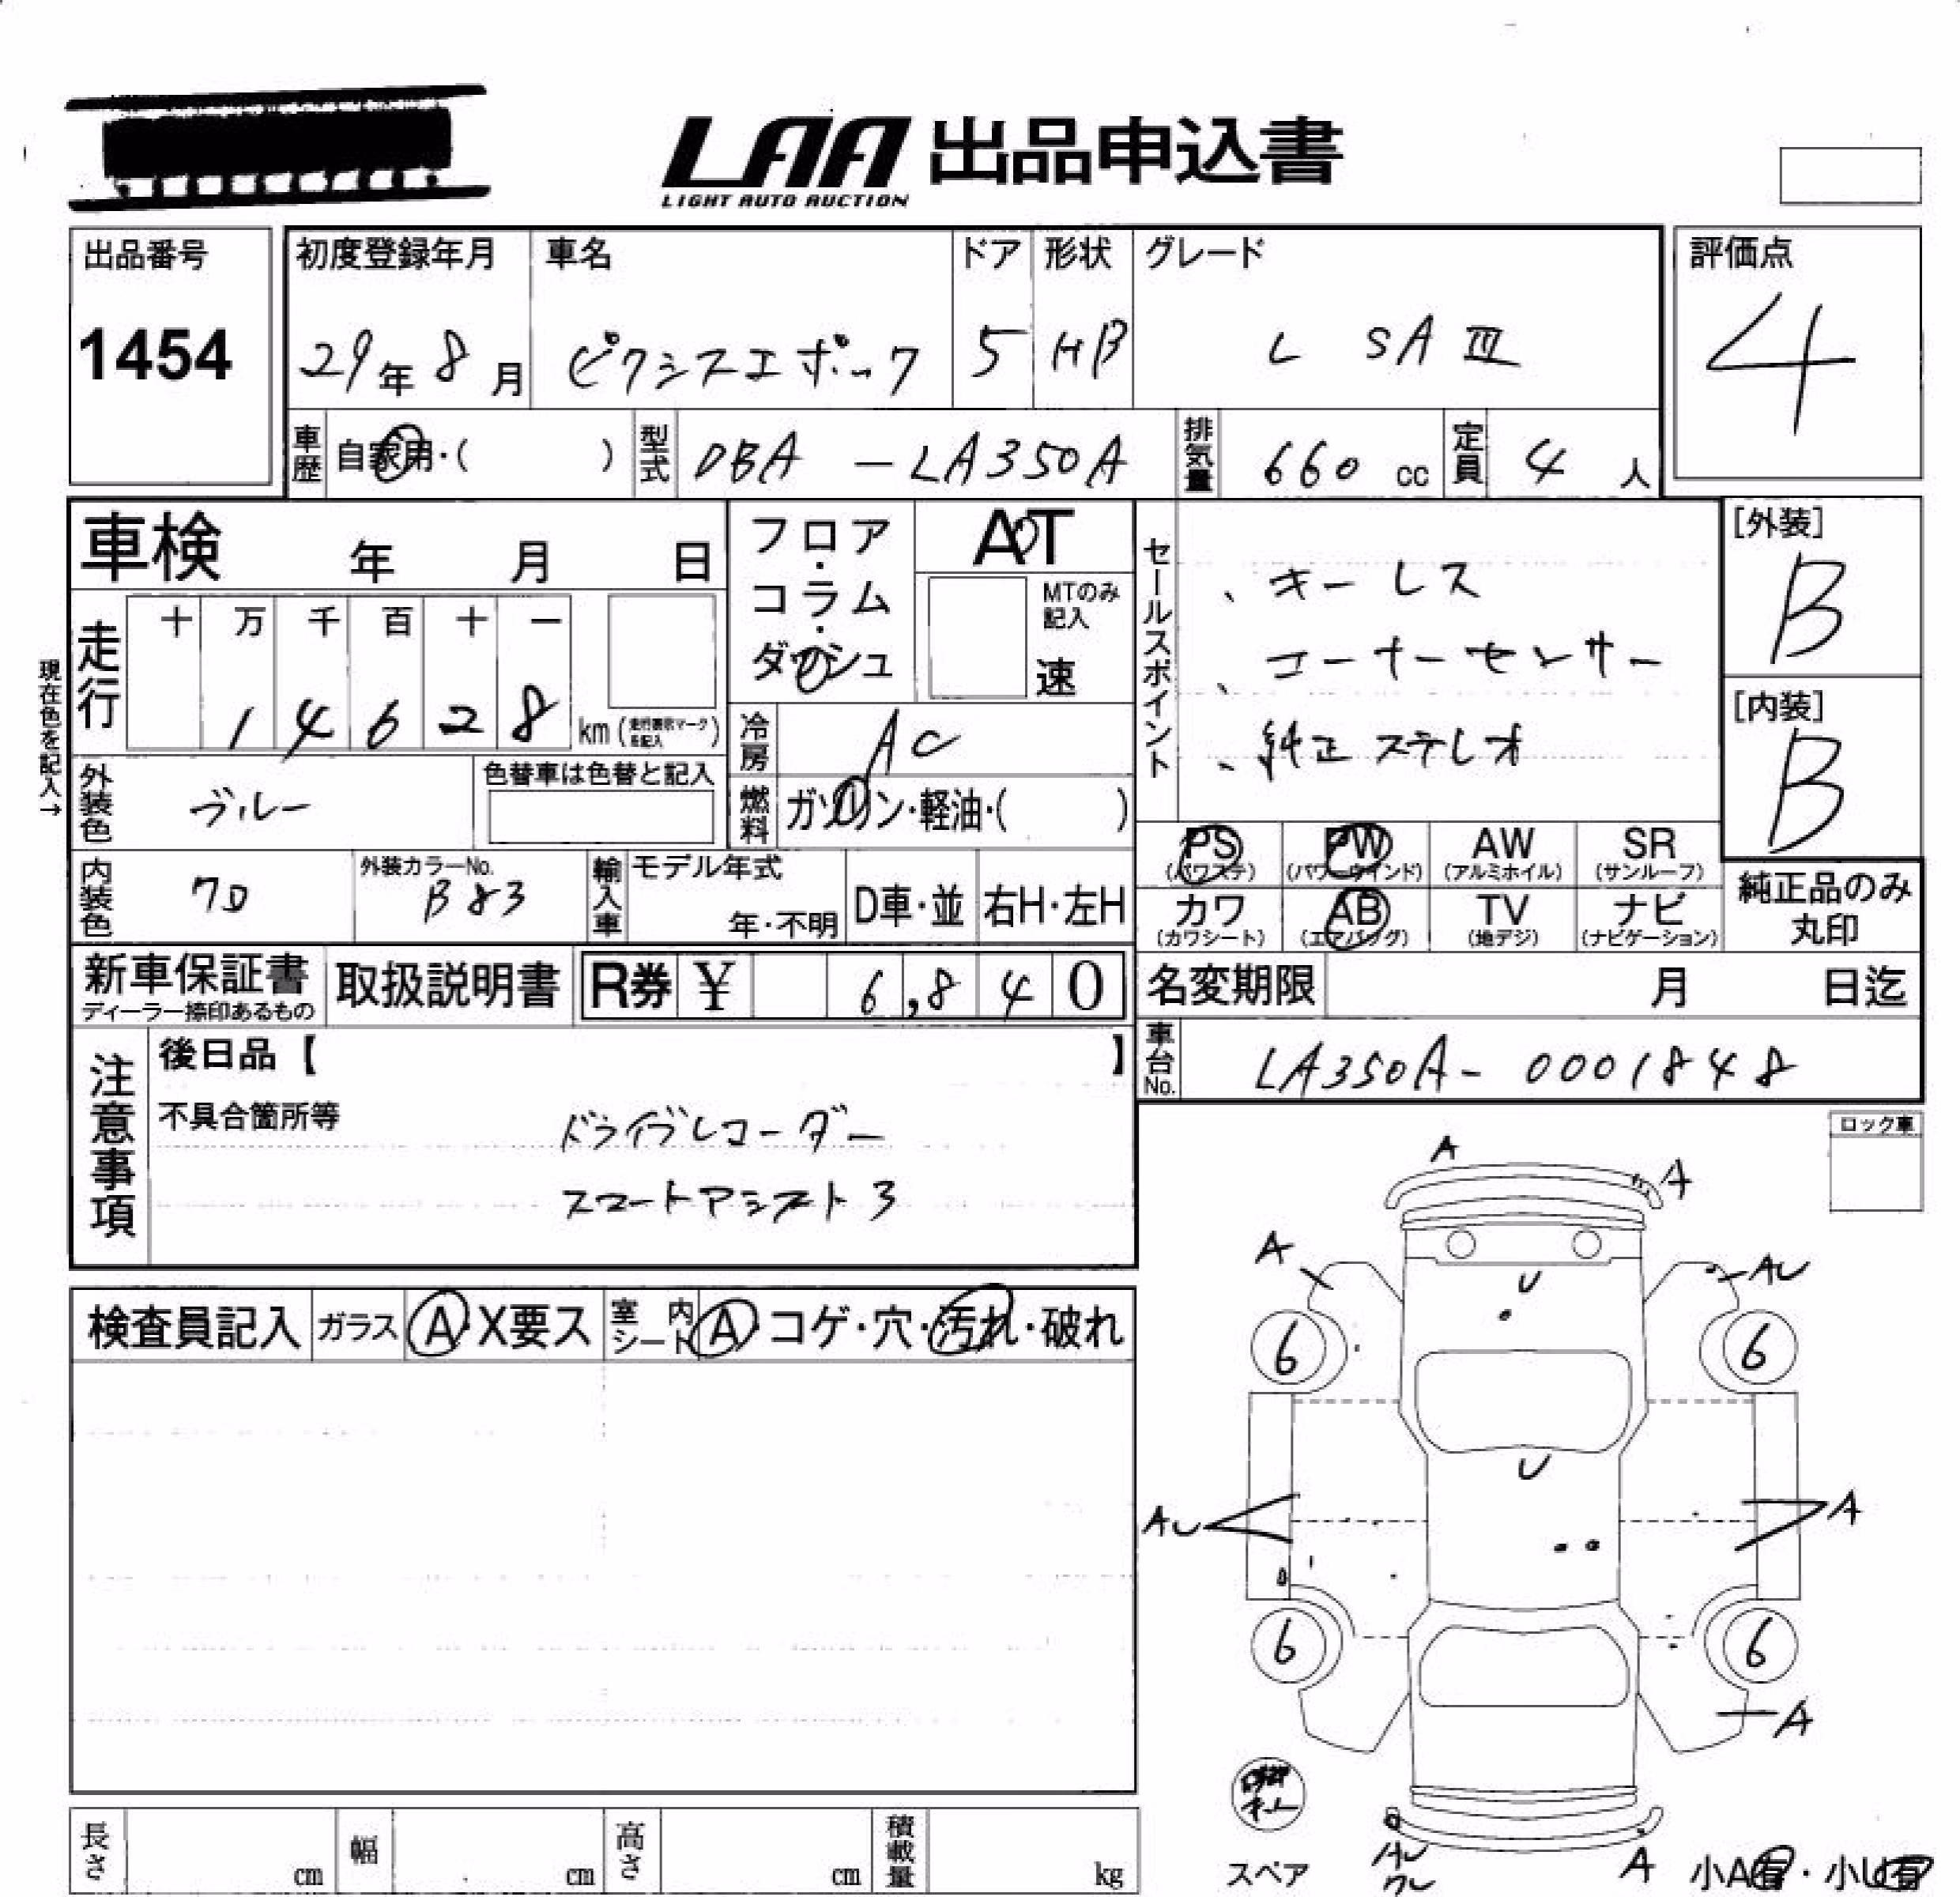 LAA 出品申込書
LIGHT AUTO AUCTION
出品番号
1454
初度登録年月
29年8月
車名
ピクシスエポック
ドア
5
形状
HB
グレード
L SAⅢ
評価点
4
車歴 自家用・( )
型式 DBA-LA350A
排気量 660cc
定員 4人
車検 年 月 日
フロア・コラム・ダッシュ
AT
MTのみ記入
速
走行
十 万 千 百 十 一
1 4 6 2 8 km
現在色を記入→
冷房 AC
燃料 ガソリン・軽油・( )
外装色 ブルー
色替車は色替と記入
内装色
外装カラーNo.
B83
輸入車
モデル年式
年・不明
D車・並
右H・左H
セールスポイント
、キーレス
、コーナーセンサー
、純正ステレオ
[外装]
B
[内装]
B
PS (パワステ)
PW (パワーウインド)
AW (アルミホイル)
SR (サンルーフ)
カワ (カワシート)
AB (エアバッグ)
TV (地デジ)
ナビ (ナビゲーション)
純正品のみ丸印
新車保証書
ディーラー捺印あるもの
取扱説明書
R券 ¥ 6,840
名変期限 月 日迄
車台No. LA350A-0001848
注意事項
後日品【 】
不具合箇所等
ドライブレコーダー
スマートアシスト3
ロック車
検査員記入
ガラス A X要ス
室内シート A・コゲ・穴・汚れ・破れ
A
A
A
AU
U
6
6
U
AU
A
6
6
A
AU
A
スペア
小A有・小U有
長さ cm
幅 cm
高さ cm
積載量 kg